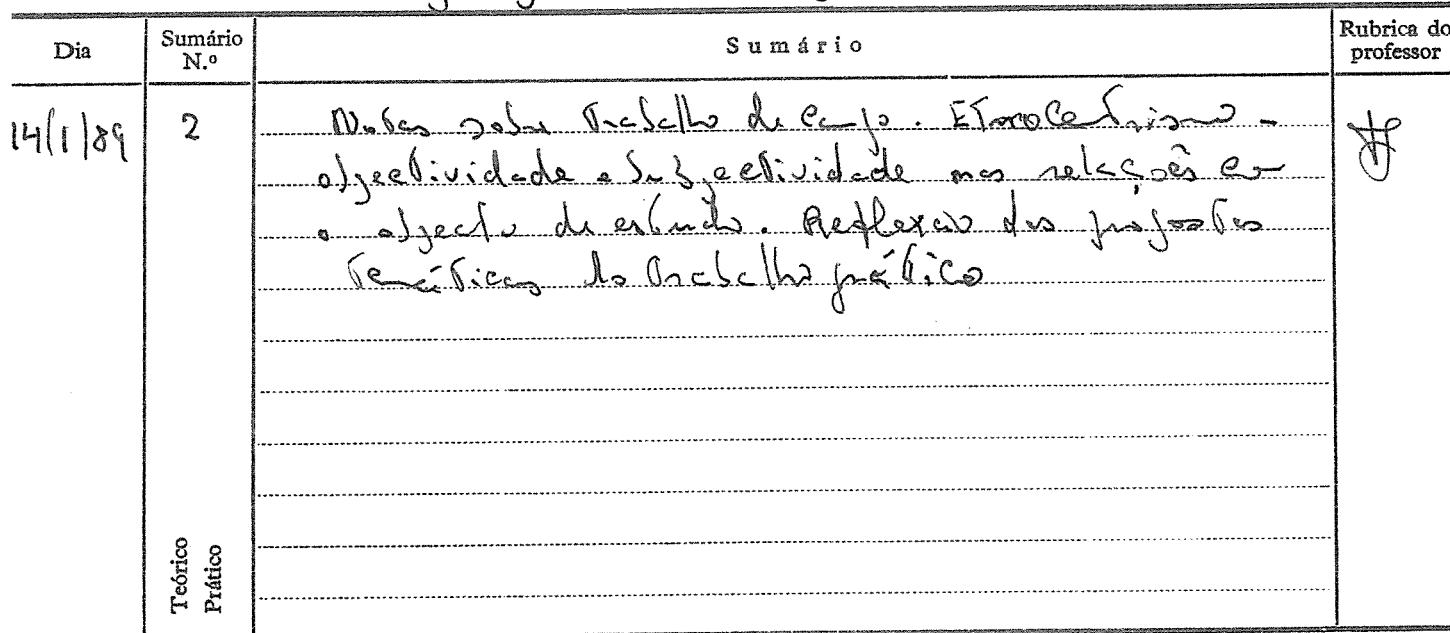 Dia
Sumário N.º
Sumário
Rubrica do professor
14/1/89
2
Notas sobre Trabalho de campo. Etnocentrismo -
objectividade e subjectividade nas relações com
o objecto de estudo. Reflexão das propostas
temáticas do trabalho prático
Teórico
Prático